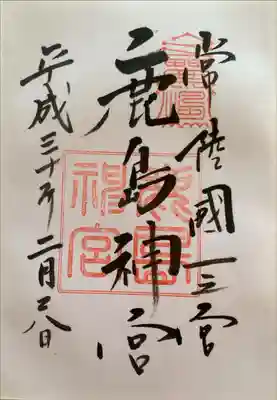 常陸國一之宮
鹿島神宮
平成三十年二月
鹿島
神宮